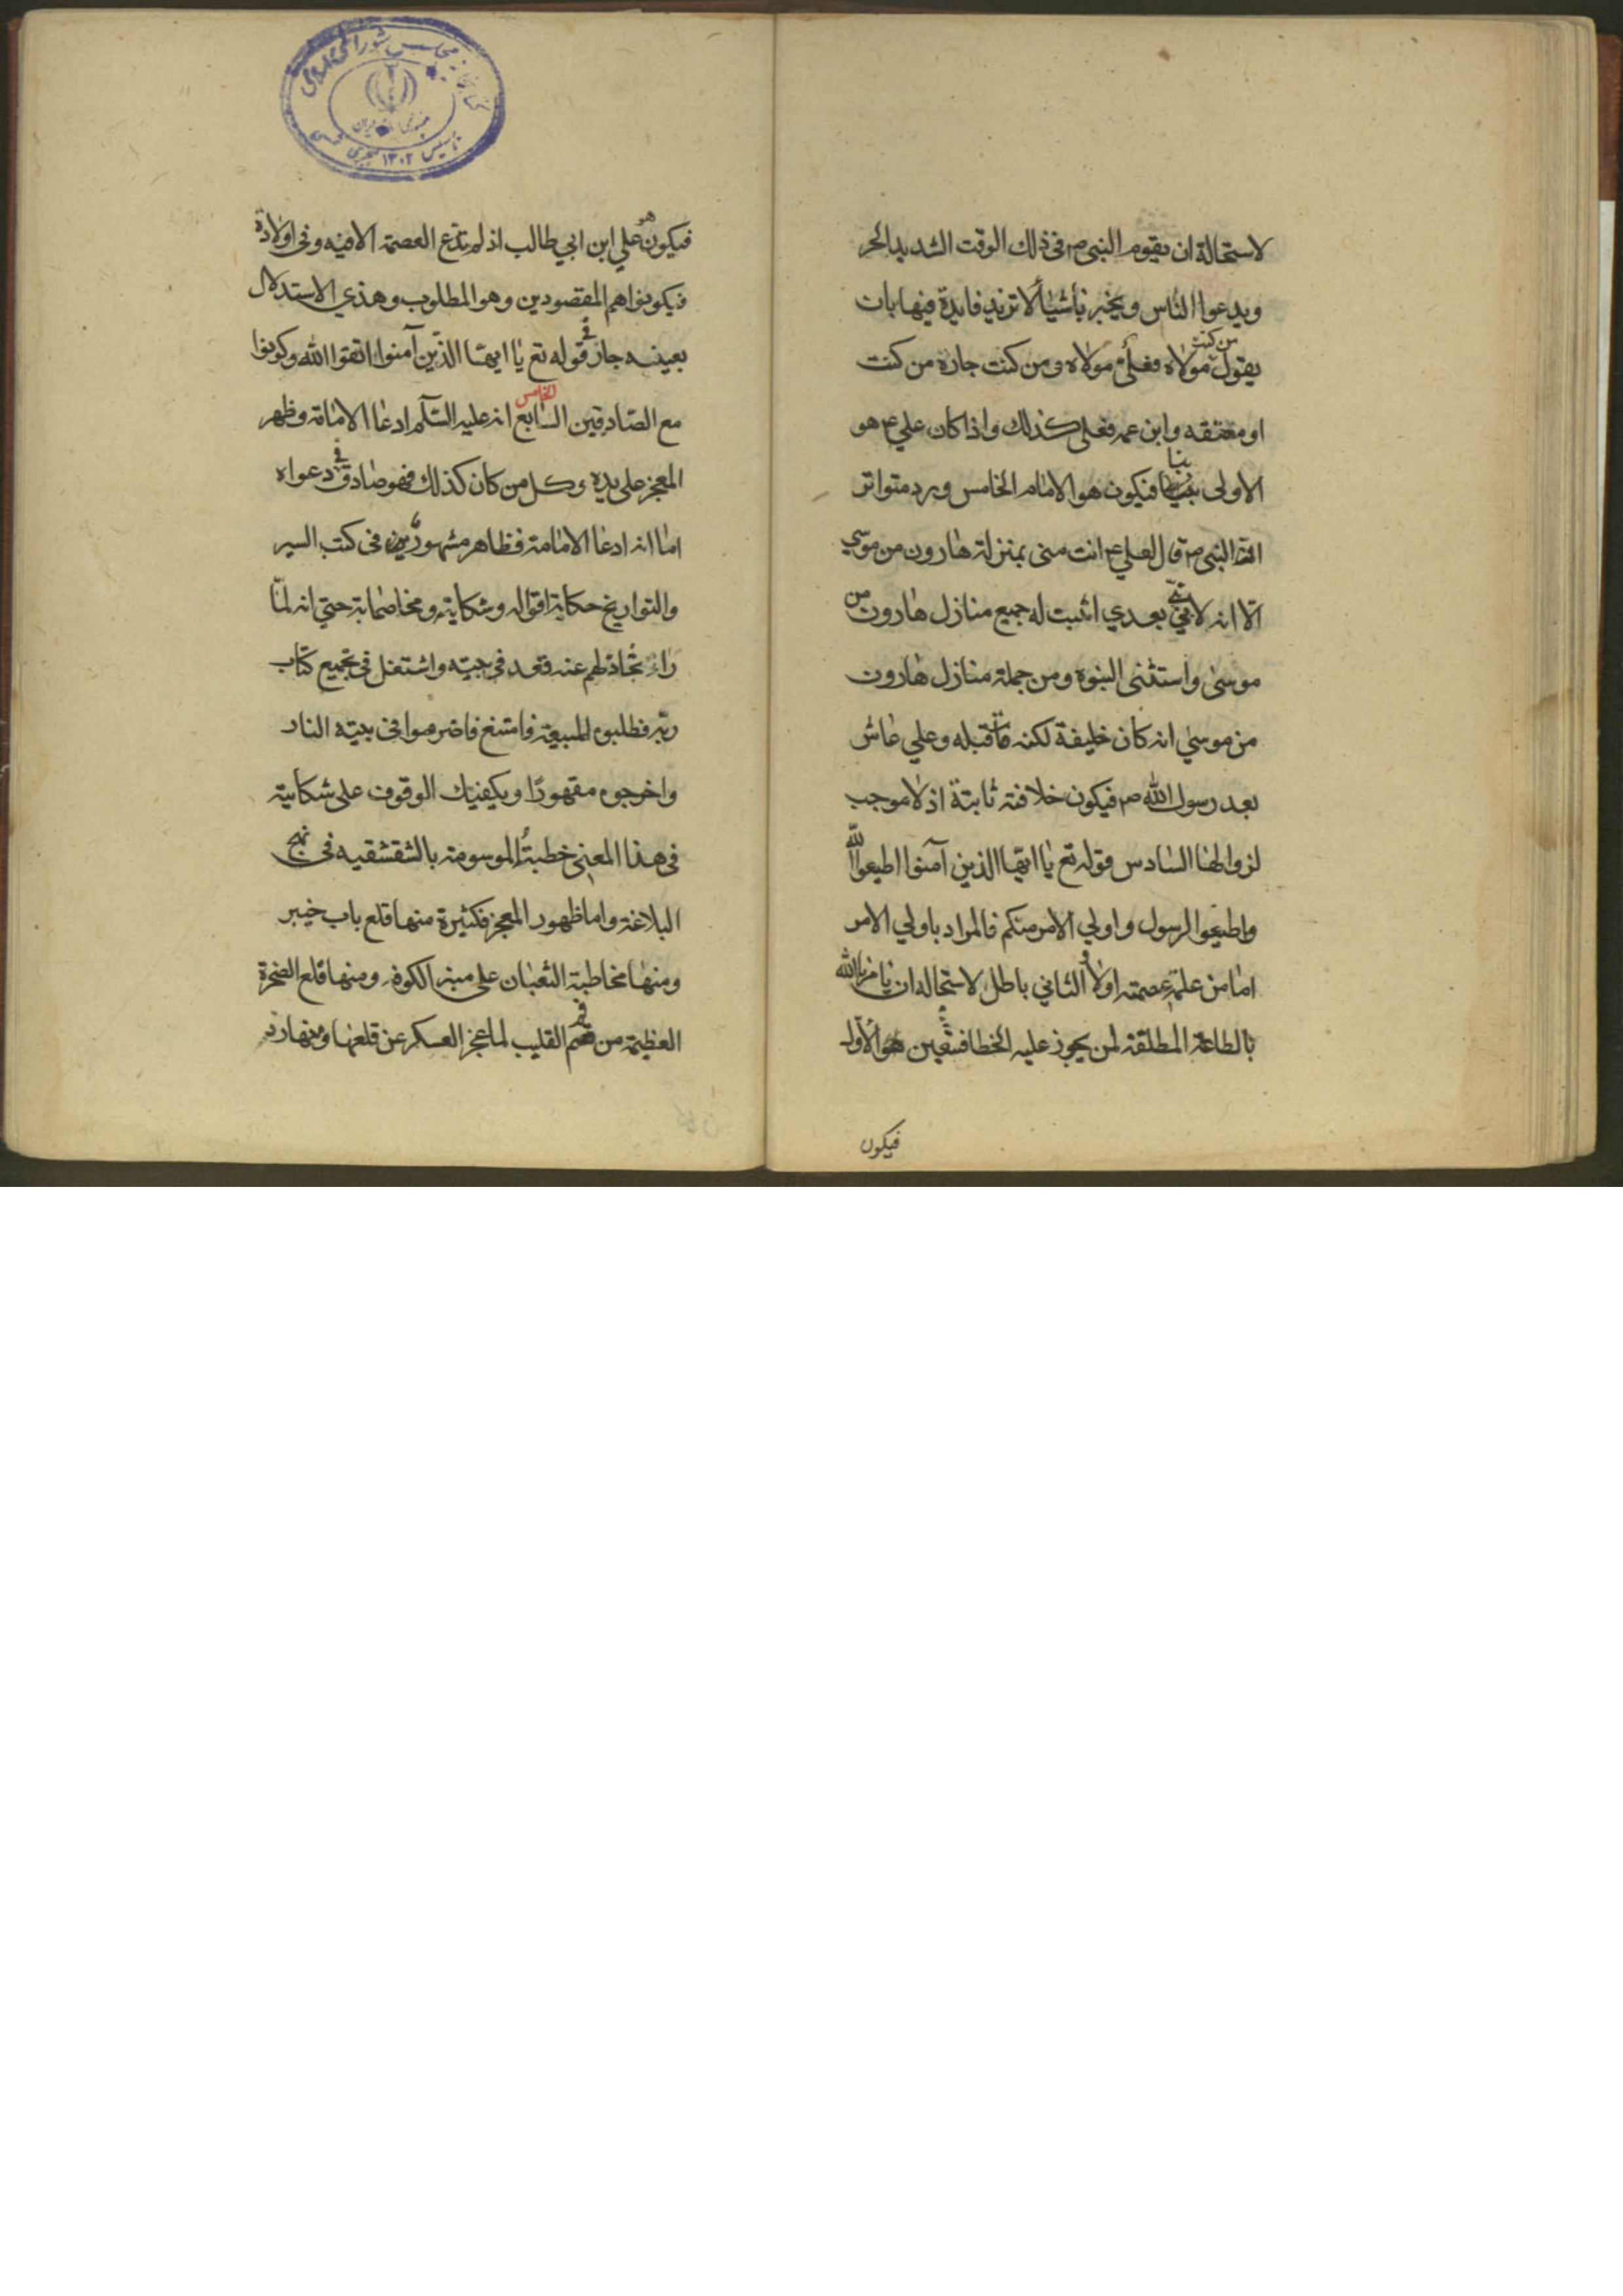 لاستحالة ان يقوم النبي ص في ذلك الوقت الشديد الحر
ويدعوا الناس ويخبر باشياء لا تزيد فايدة فيها بان
يقول من كنت مولاه فعلي مولاه ومن كنت جاره من كنت
او معتقه وابن عمه فعلي كذلك واذا كان علي ع هو
الاولى بنا فيكون هو الامام الخامس ورد متواتر
انّ النبي ص قال لعلي ع انت مني بمنزلة هارون من موسي
الّا انه لا نبي بعدي اثبت له جميع منازل هارون من
موسى واستثنى النبوه ومن جملة منازل هارون
من موسي انه كان خليفة لكنه مات قبله وعلي عاش
بعد رسول الله ص فيكون خلافته ثابتة اذ لا موجب
لزوالها السادس قوله تع يا ايها الذين آمنوا اطيعوا الله
واطيعوا الرسول واولي الامر منكم فالمراد باولي الامر
اما من علم عصمته اولا والثاني باطل لاستحاله ان يامر الله
بالطاعة المطلقة لمن يجوز عليه الخطا فتعين هو الاول
فيكون
فيكون هو علي ابن ابي طالب اذ لم تدّع العصمة الا فيه وفي اولاده
فيكونوا هم المقصودين وهو المطلوب وهذي الاستدلال
بعينه جار في قوله تع يا ايها الذين آمنوا اتقوا الله وكونوا
مع الصادقين السابع الخامس انه عليه السّلم ادعا الامامة وظهر
المعجز على يده وكل من كان كذلك فهو صادق في دعواه
اما انه ادعا الامامة فظاهر مشهور في كتب السير
والتواريخ حكاية اقواله وشكايته ومخاصماته حتي انه لمّا
راى تخاذلهم عنه قعد في بيته واشتغل في تجميع كتاب
ربّه فطلبوه للبيعة فامتنع فاضرموا في بيته النار
واخرجوه مقهورًا ويكفيك الوقوف على شكايته
في هذا المعني خطبته الموسومة بالشقشقيه في نهج
البلاغة واما ظهور المعجز فكثيرة منها قلع باب خيبر
ومنها مخاطبة الثعبان على منبر الكوفه ومنها قلع الصخرة
العظيمة من فم القليب لما عجز العسكر عن قلعها ومنها رد